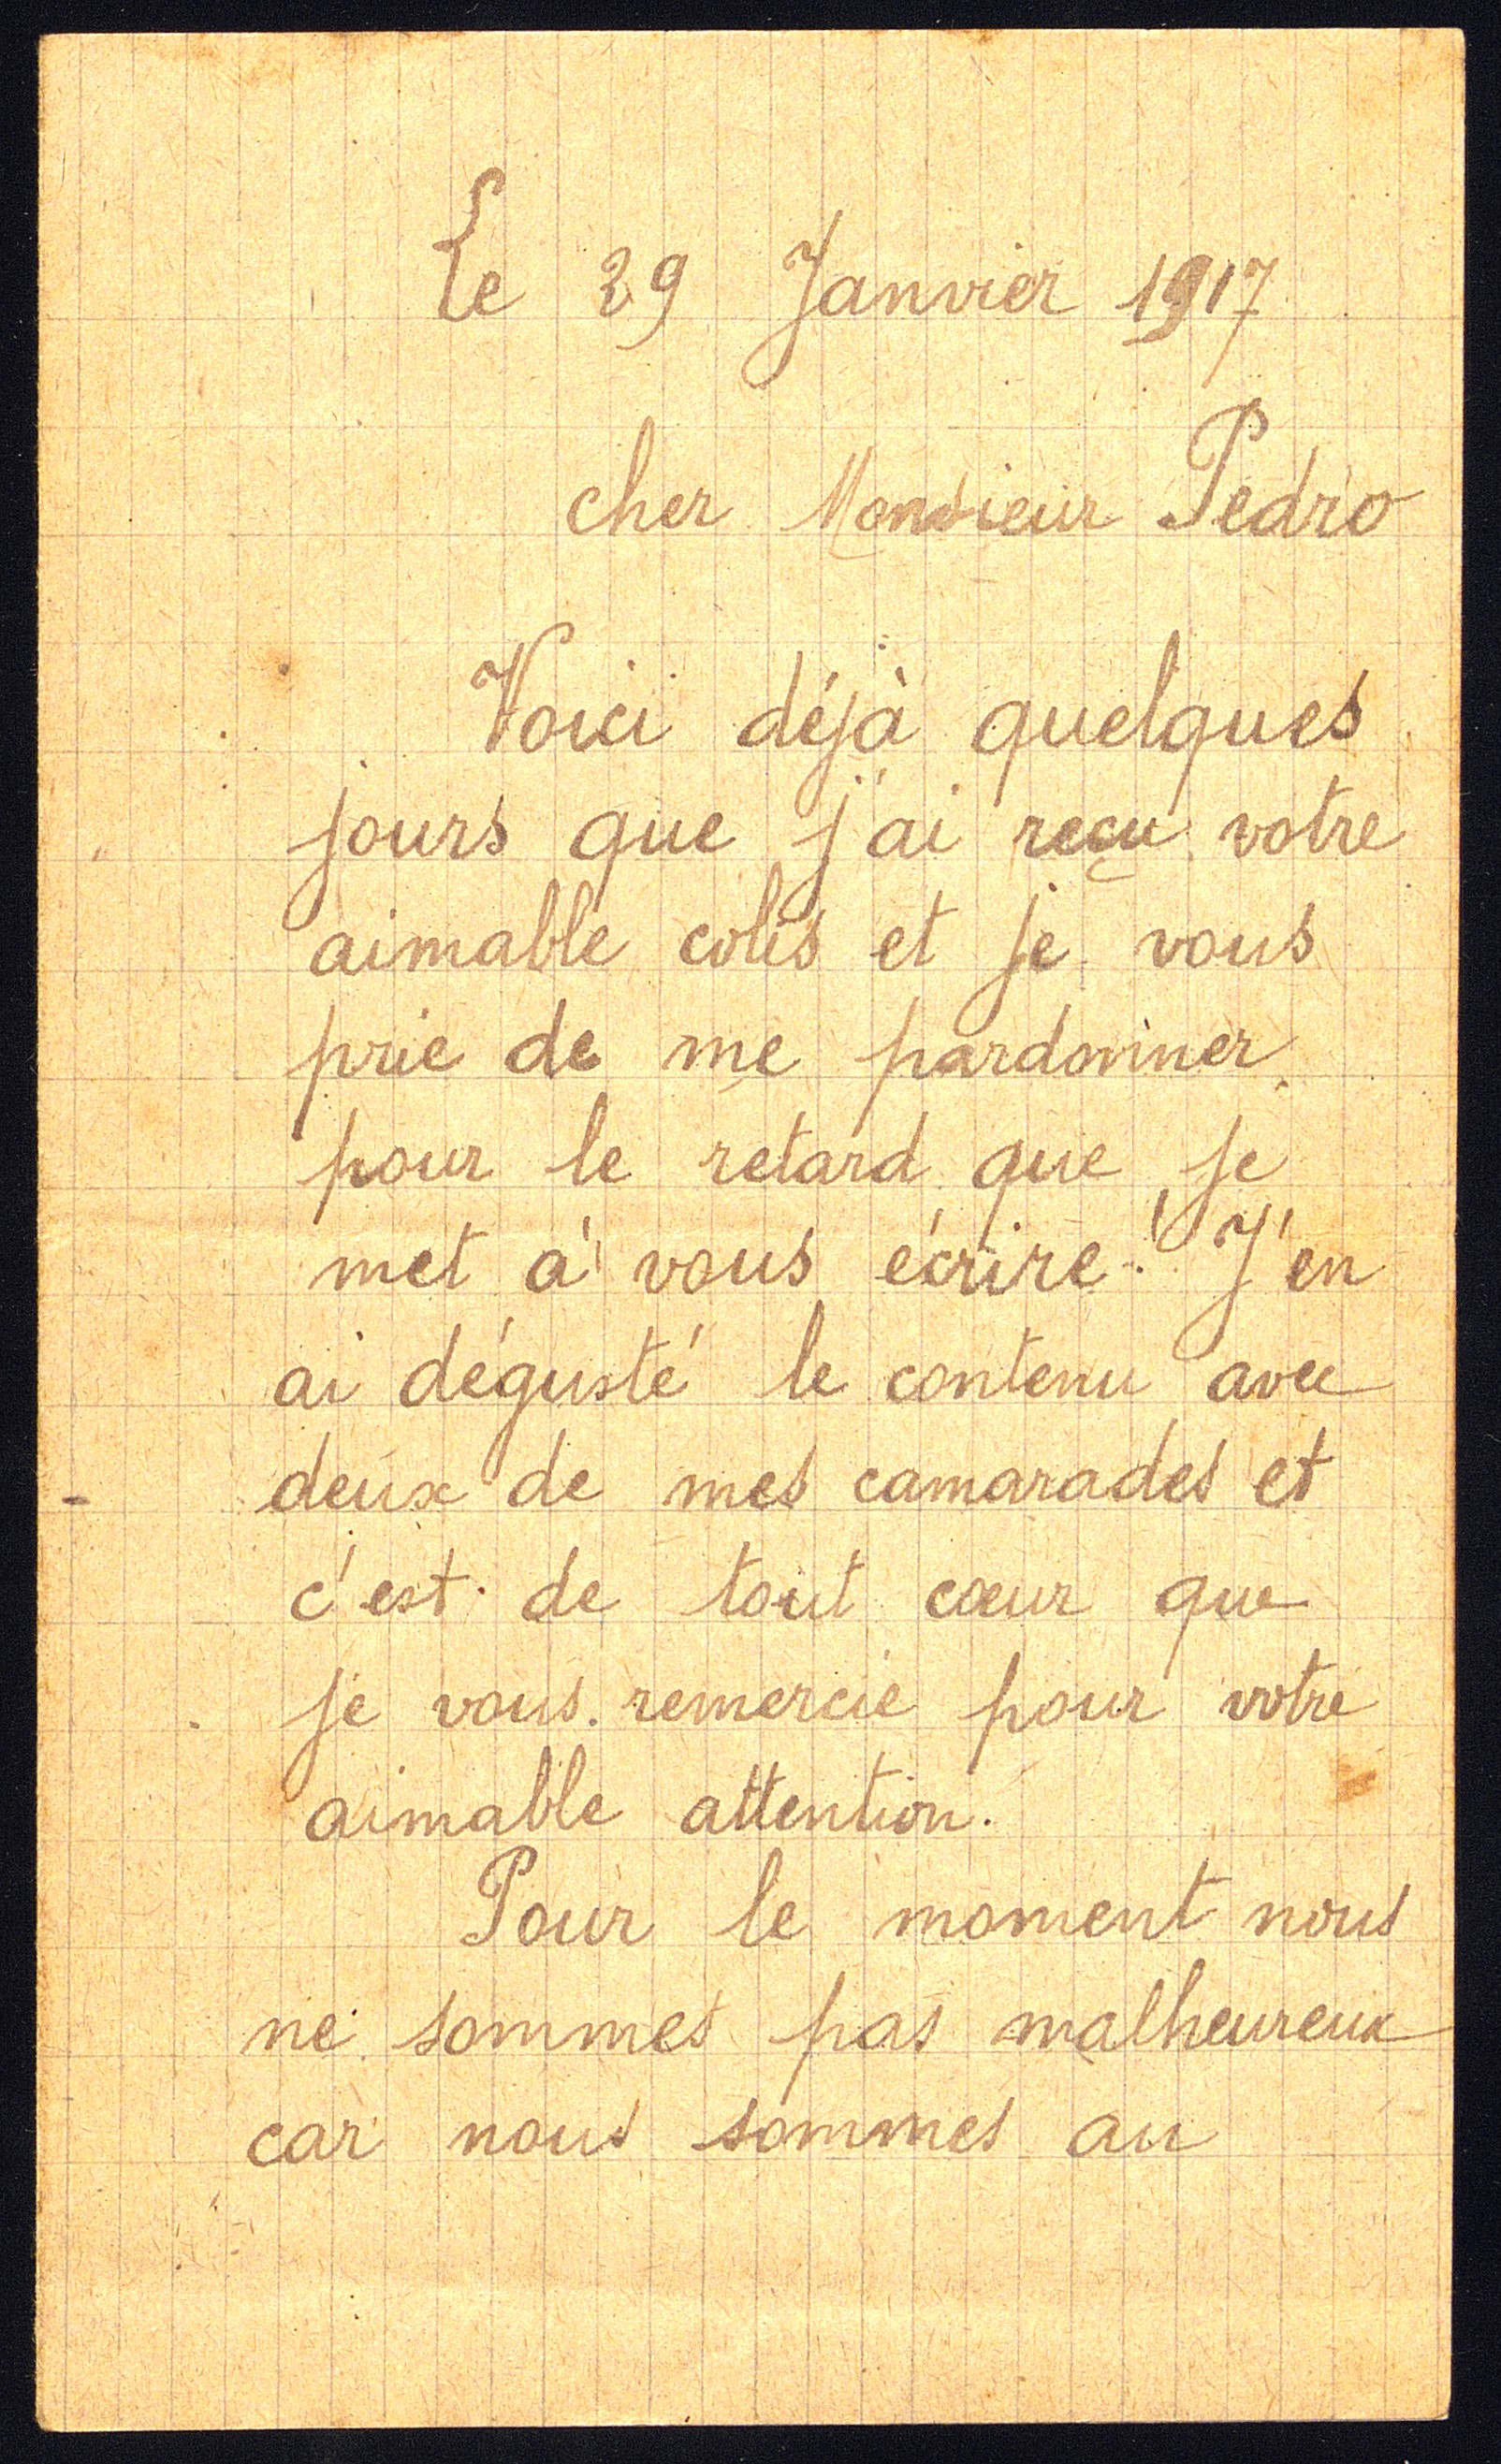 Le 29 Janvier 1917
cher Monsieur Pedro
Voici déjà quelques
jours que j'ai reçu votre
aimable colis et je vous
prie de me pardonner
pour le retard que je
met à vous écrire. J'en
ai dégusté le contenu avec
deux de mes camarades et
c'est de tout cœur que
je vous remercie pour votre
aimable attention.
Pour le moment nous
ne sommes pas malheureux
car nous sommes au